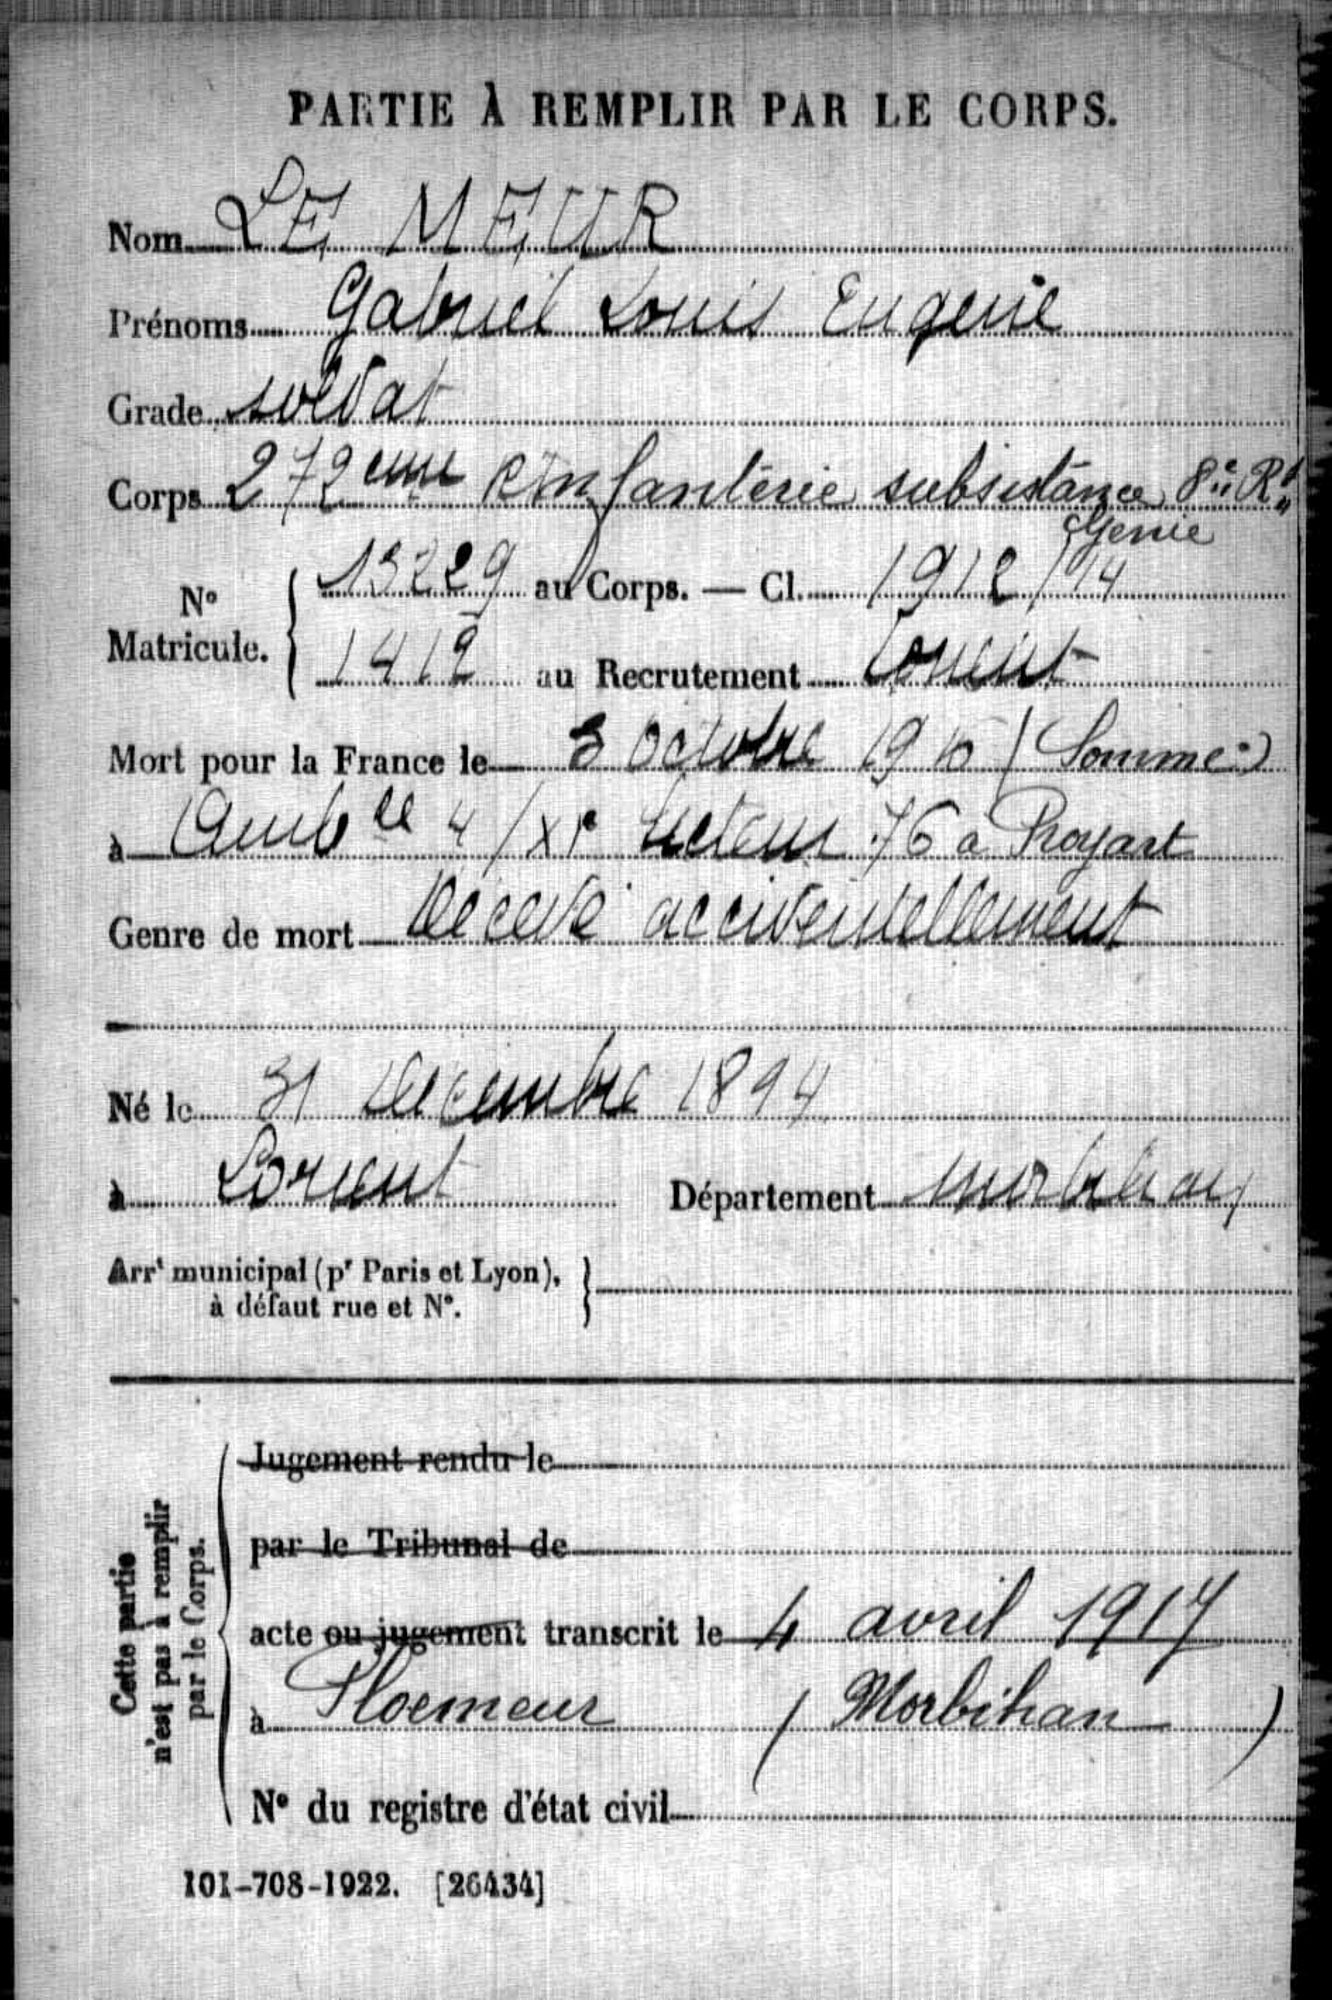 PARTIE À REMPLIR PAR LE CORPS.
Nom LE MEUR
Prénoms Gabriel Louis Eugene
Grade soldat
Corps 272eme R Infanterie subsistance 8e Rt
Génie
No Matricule. 13229 au Corps. — Cl. 1912/14
1412 au Recrutement Lorient
Mort pour la France le 3 octobre 1916 (Somme)
à Ambce 4/XI secteur 76 à Proyart
Genre de mort décédé accidentellement
Né le 31 décembre 1894
à Lorient Département Morbihan
Arrt municipal (pr Paris et Lyon),
à défaut rue et No.
Cette partie
n'est pas à remplir
par le Corps.
Jugement rendu le
par le Tribunal de
acte ou jugement transcrit le 4 avril 1917
à Ploemeur (Morbihan)
No du registre d'état civil
101-708-1922. [26434]